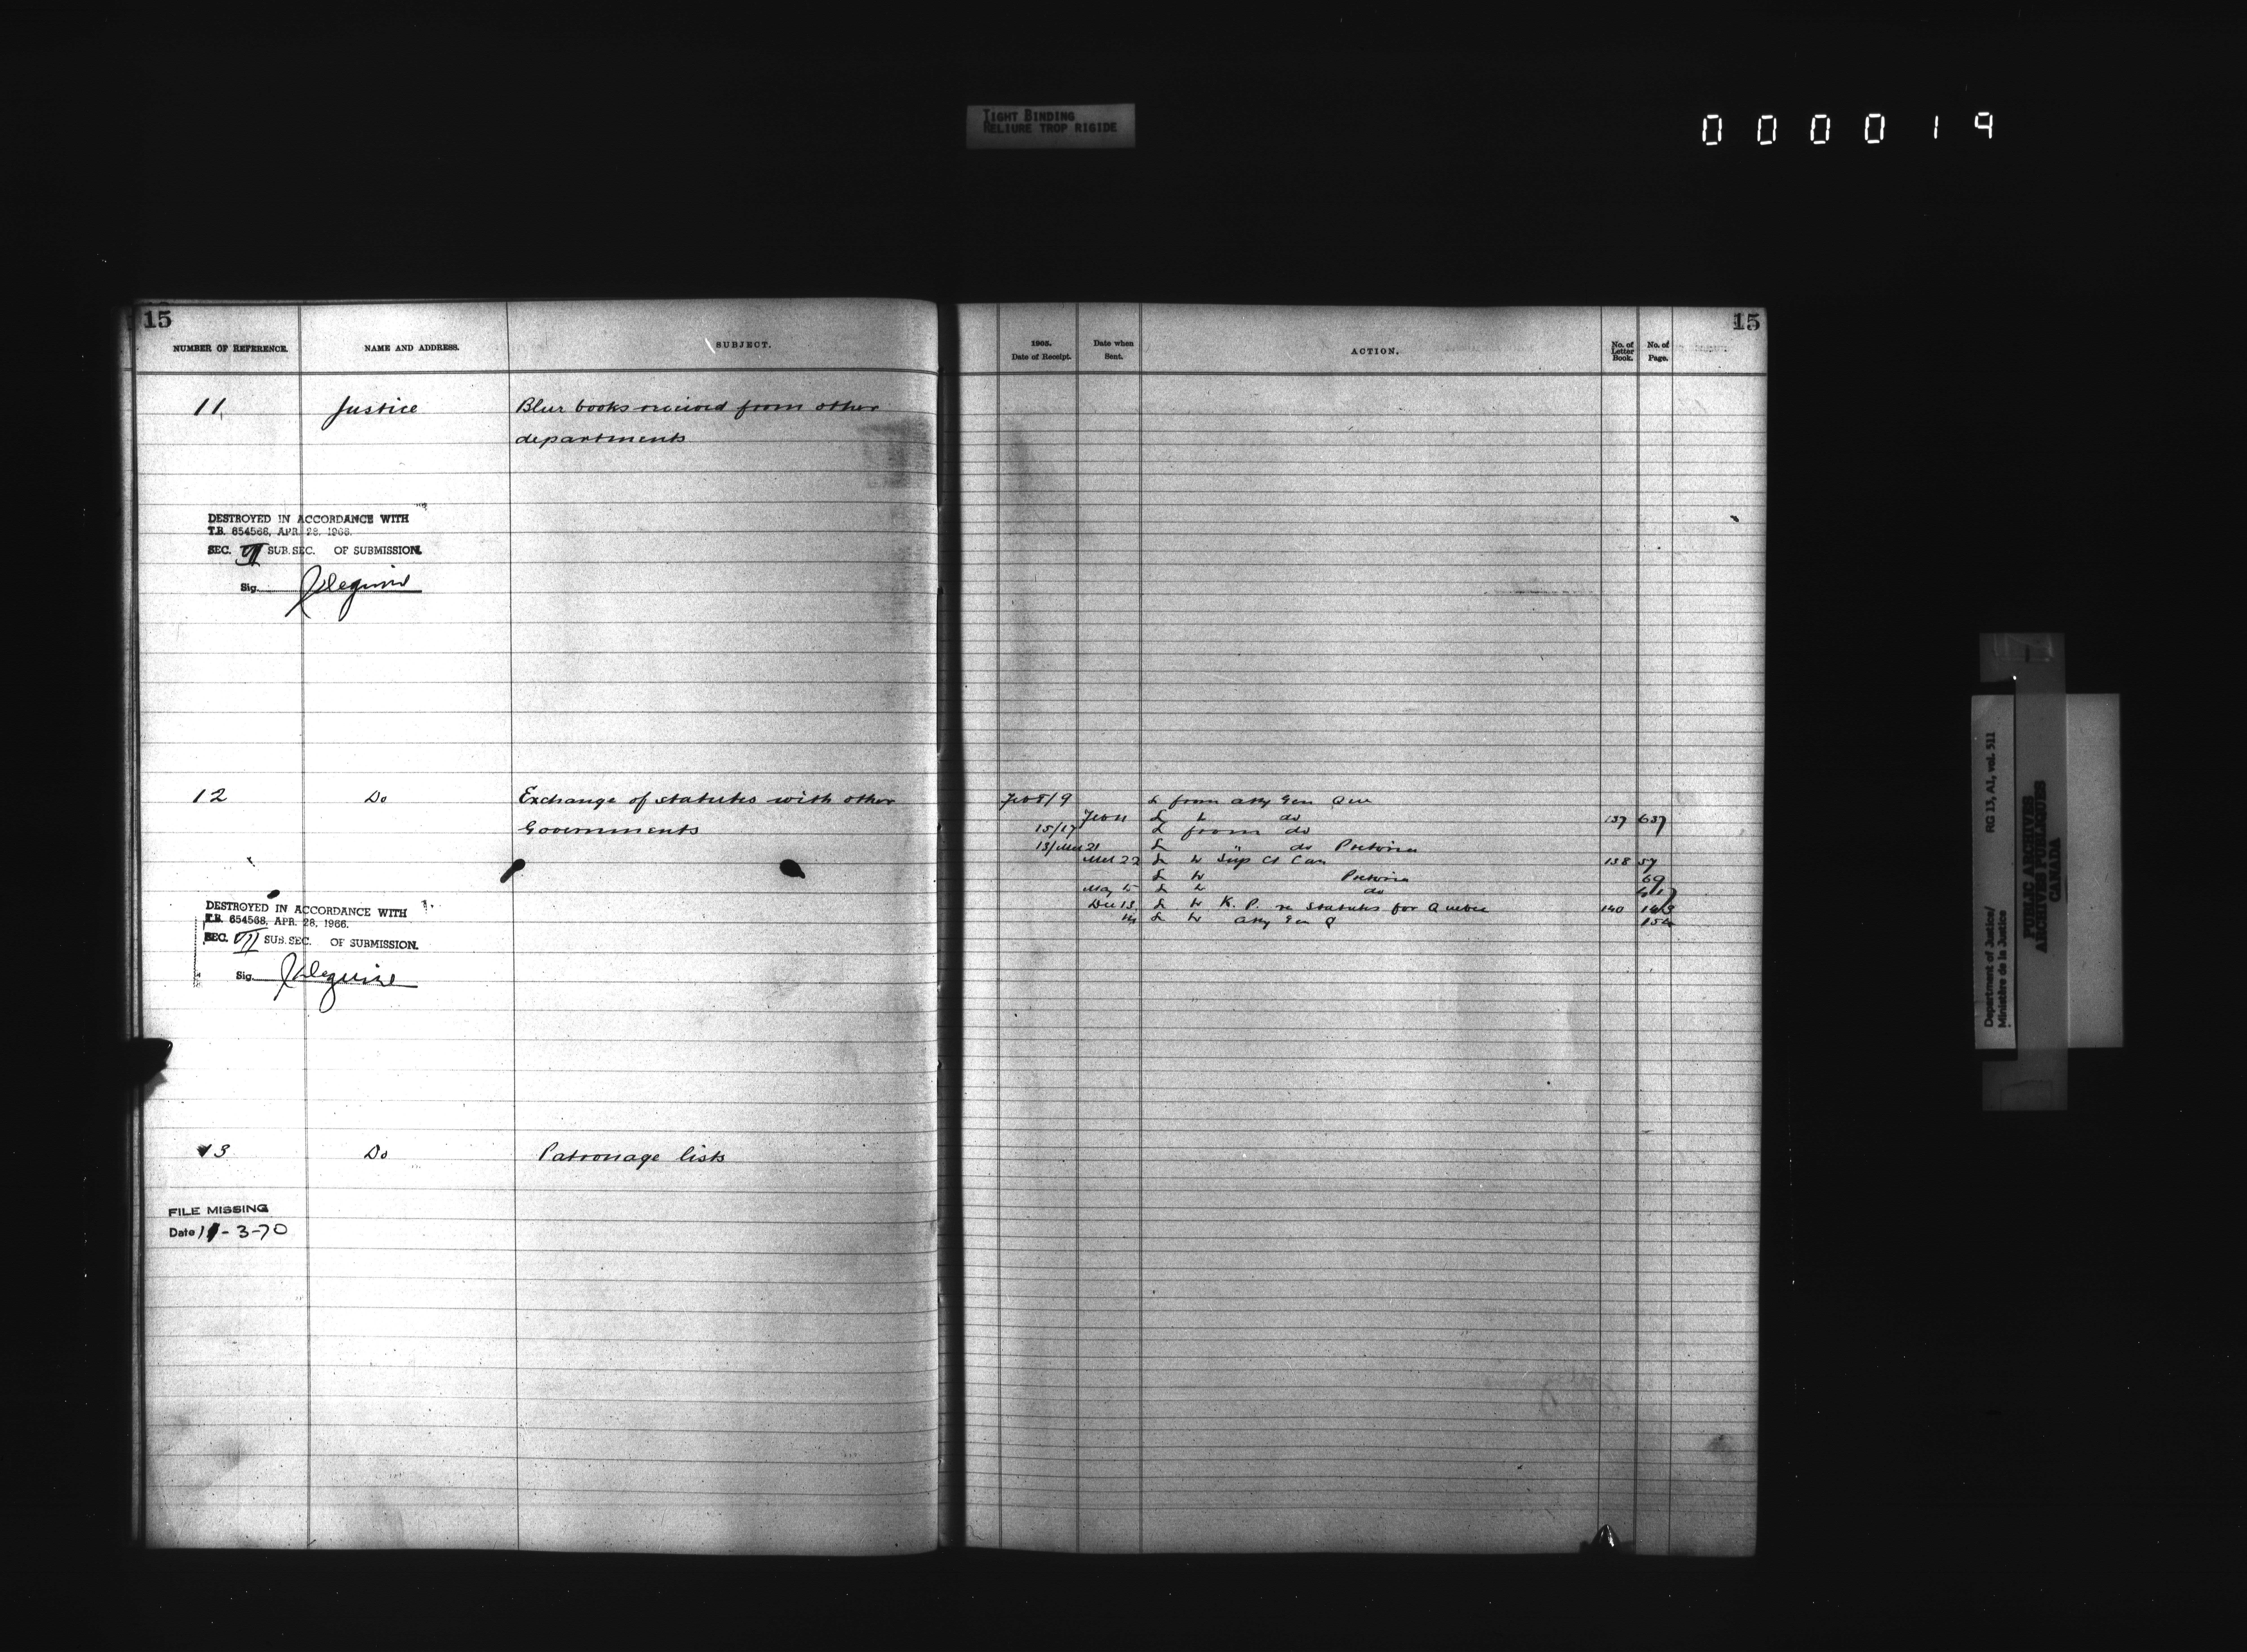 TIGHT BINDING
RELIURE TROP RIGIDE
000019
15
NUMBER OF REFERENCE. NAME AND ADDRESS. SUBJECT.
11 Justice Blue books received from other
departments
DESTROYED IN ACCORDANCE WITH
T.B. 654566, APR. 28, 1966.
SEC. VII SUB.SEC. OF SUBMISSION.
Sig.
12 Do Exchange of statutes with other
Governments
DESTROYED IN ACCORDANCE WITH
T.B. 654566, APR. 28, 1966.
SEC. VII SUB.SEC. OF SUBMISSION.
Sig.
13 Do Patronage lists
FILE MISSING
Date 11-3-70
15
1905. Date of Receipt. Date when Sent. ACTION. No. of Letter Book. No. of Page.
Feb 8/9 L from Atty Gen Que
Feb 11 L to do 137 637
15/17 L from do
13/Mch 21 L " do Pretoria
Mch 22 L to Sup Ct Can 138 57
L to Pretoria 69
May 15 L to do
Dec 13 L to K. P. re Statutes for Quebec 140 143
14 L to Atty Gen Q 154
Department of Justice/ RG 13, A1, vol. 511
Ministère de la Justice
PUBLIC ARCHIVES
ARCHIVES PUBLIQUES
CANADA